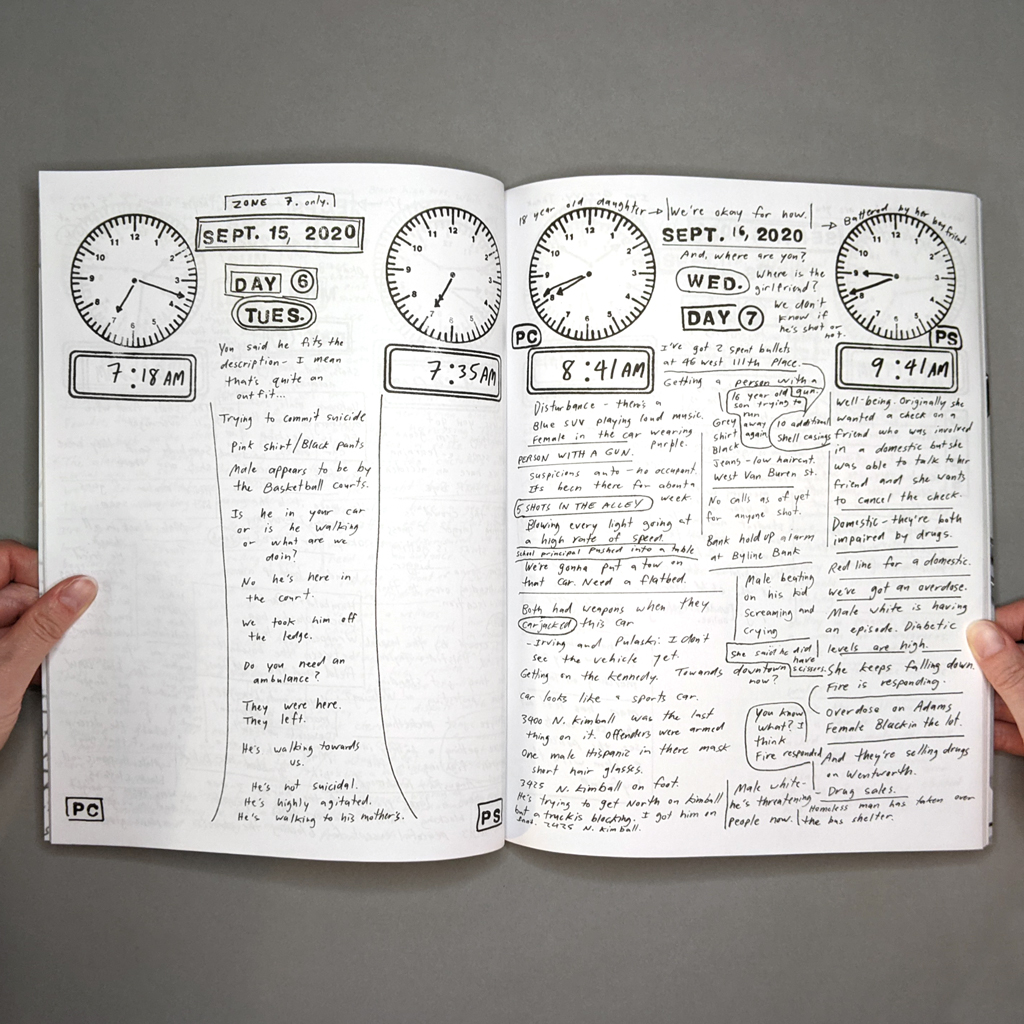 ZONE 7. only.
SEPT. 15, 2020
DAY 6
TUES.
7:18 AM
7:35 AM
You said he fits the
description - I mean
that's quite an
outfit...
Trying to commit suicide
Pink shirt/Black pants
Male appears to be by
the Basketball courts.
Is he in your car
or is he walking
or what are we
doin?
No he's here in
the court.
We took him off
the ledge.
Do you need an
ambulance?
They were here.
They left.
He's walking towards
us.
He's not suicidal.
He's highly agitated.
He's walking to his mothers.
PC
PS
18 year old daughter → We're okay for now. → Battered by her boyfriend.
SEPT. 16, 2020
And, where are you?
WED.
Where is the
girlfriend?
DAY 7
We don't
know if
he's shot or
not.
PC
8:41 AM
PS
9:41 AM
I've got 2 spent bullets
at 46 west 111th Place.
Getting a person with a
gun.
16 year old
son trying to
run
away
again
10 additional
shell casings
Grey
shirt
Black
Jeans - low haircut.
West Van Buren St.
No calls as of yet
for anyone shot.
Bank hold up alarm
at Byline Bank
Male beating
on his kid
Screaming and
crying
She said he did
have
scissors.
Disturbance - there's a
Blue SUV playing loud music.
Female in the car wearing
purple.
PERSON WITH A GUN.
Suspicious auto - no occupant.
Its been there for about a
week.
5 SHOTS IN THE ALLEY
Blowing every light going at
a high rate of speed.
School principal pushed into a table
We're gonna put a tow on
that car. Need a flatbed.
Both had weapons when they
carjacked this car
- Irving and Pulaski: I don't
see the vehicle yet.
Getting on the Kennedy. Towards downtown
now?
Car looks like a sports car.
3900 N. Kimball was the last
thing on it. Offenders were armed
One male Hispanic in there mask
short hair glasses.
3925 N. Kimball on foot.
He's trying to get North on Kimball
but a truck is blocking. I got him on
2925 N. Kimball.
You know
what? I
think
Fire responded
Male white -
he's threatening
people now.
Well-being. Originally she
wanted a check on a
friend who was involved
in a domestic but she
was able to talk to her
friend and she wants
to cancel the check.
Domestic - they're both
impaired by drugs.
Red line for a domestic.
We've got an overdose.
Male white is having
an episode. Diabetic
levels are high.
She keeps falling down.
Fire is responding.
Overdose on Adams
Female Black in the lot.
And they're selling drugs
on Wentworth.
- Drug sales.
Homeless man has taken over
the bus shelter.